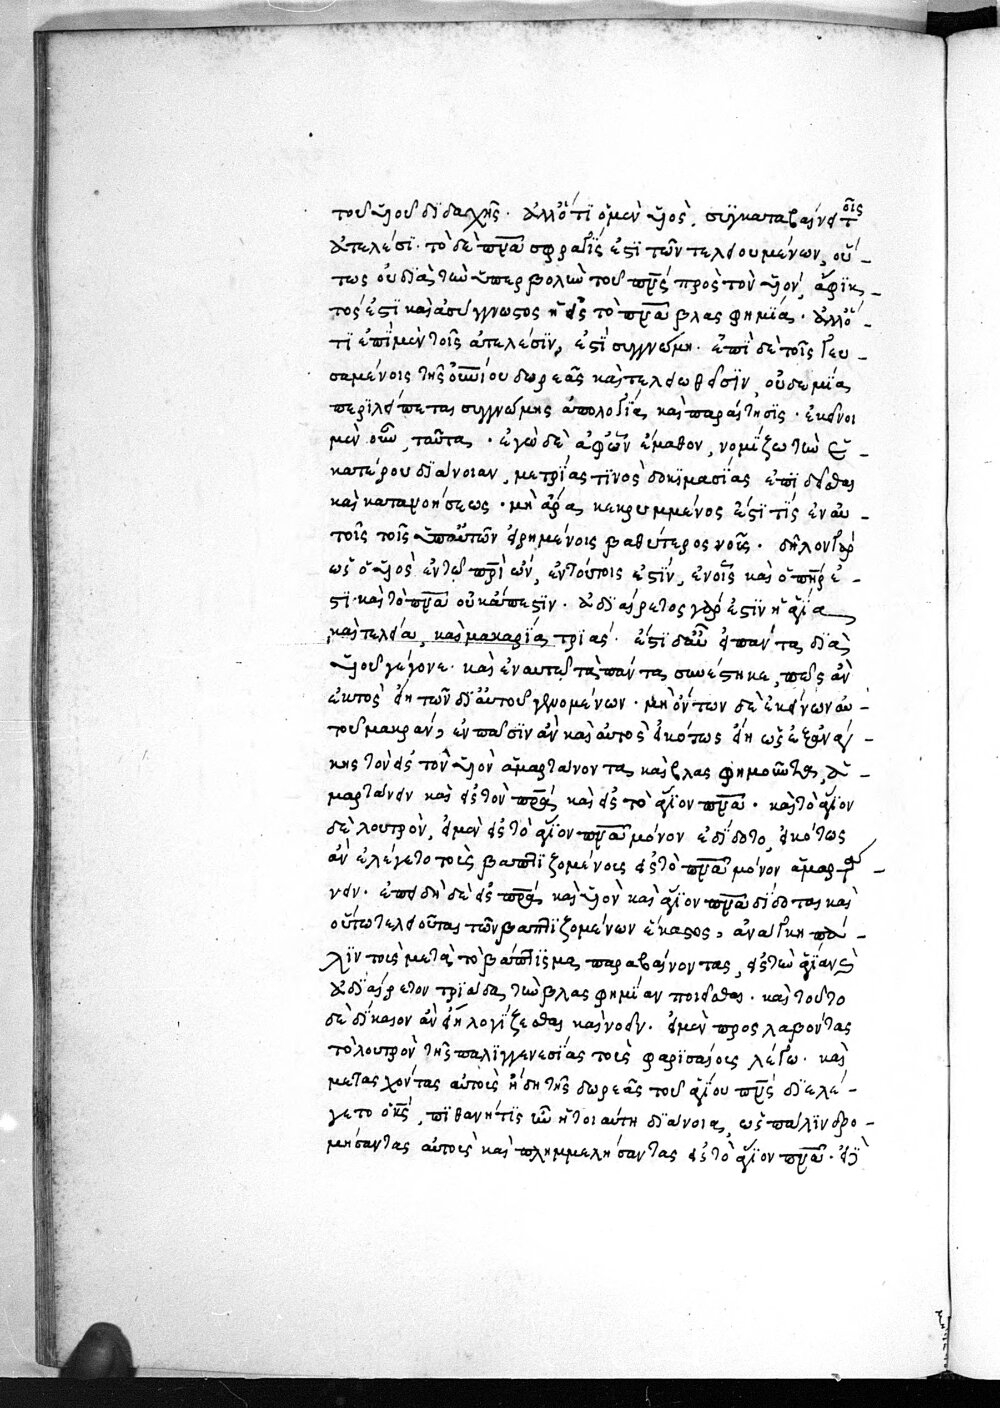 τοῦ υἱοῦ διδαχῆς· ἀλλ' ὅτι ὁ μὲν υἱὸς, συγκαταβαίνει τοῖς
ἀτελέσι· τὸ δὲ πνᾶ σφραγίς ἐστι τῶν τελειουμένων, οὕ-
τως οὐ διὰ τὴν ὑπερβολὴν τοῦ πνς πρὸς τὸν υἱὸν, ἄφυκ-
τός ἐστι καὶ ἀσύγγνωστος ἡ εἰς τὸ πνᾶ βλασφημία· ἀλλ' ὅ-
τι ἐπὶ μὲν τοῖς ἀτελέσιν, ἐστὶ συγγνώμη· ἐπὶ δὲ τοῖς γευ-
σαμένοις τῆς οὐνίου δωρεᾶς καὶ τελειωθεῖσιν, οὐδεμία
περιλείπεται συγγνώμης ἀπολογία καὶ παραίτησις· ἐκεῖνοι
μὲν οὖν ταῦτα· ἐγὼ δὲ ἀφ' ὧν ἔμαθον, νομίζω τὴν ἑ-
κατέρου διάνοιαν, μετρίας τινὸς δοκιμασίας ἐπιδεῖσθαι
καὶ κατανοήσεως· μὴ ἄρα κεκρυμμένος ἐστί τις ἐν αὐ-
τοῖς τοῖς ὑπ' αὐτῶν εἰρημένοις βαθύτερος νοῦς· δῆλον γὰρ
ὡς ὁ υἱὸς ἐν τῷ πρὶ ὢν, ἐν τούτοις ἐστίν, ἐν οἷς καὶ ὁ πὴρ ἐ-
στι· καὶ τὸ πνᾶ οὐκ ἄπεστιν· ἀδιαίρετος γὰρ ἐστιν ἡ ἁγία
καὶ τελεία, καὶ μακαρία τριάς· ἔτι δ' αὖ εἰ πάντα διὰ
υἱοῦ γέγονε· καὶ ἐν αὐτῷ τὰ πάντα συνέστηκε, πῶς ἂν
ἐκτὸς εἴη τῶν δι' αὐτοῦ γενομένων· μὴ ὄντων δὲ ἐκείνων αὐ-
τοῦ μακρὰν, ἐν πᾶσιν ἂν καὶ αὐτὸς εἰκότως εἴη ὡς ἐξ ἀνάγ-
κης τὸν εἰς τὸν υἱὸν ἁμαρτάνοντα καὶ βλασφημοῦντα, ἁ-
μαρτάνειν καὶ εἰς τὸν πρᾶ καὶ εἰς τὸ ἅγιον πνᾶ· καὶ τὸ ἅγιον
δὲ λουτρὸν, εἰ μὲν εἰς τὸ ἅγιον πνᾶ μόνον ἐδίδοτο, εἰκότως
ἂν ἐλέγετο τοὺς βαπτιζομένους εἰς τὸ πνᾶ μόνον ἁμαρτά-
νειν· ἐπειδὴ δὲ εἰς πρᾶ καὶ υἱὸν καὶ ἅγιον πνᾶ δίδοται καὶ
οὕτω τελειοῦται τῶν βαπτιζομένων ἕκαστος, ἀνάγκη πά-
λιν τοὺς μετὰ τὸ βάπτισμα παραβαίνοντας, εἰς τὴν ἁγίαν καὶ
ἀδιαίρετον τριάδα τὴν βλασφημίαν ποιεῖσθαι· καὶ τοῦτο
δὲ δίκαιον ἂν εἴη λογίζεσθαι καὶ νοεῖν· εἰ μὲν προσλαβόντας
τὸ λουτρὸν τῆς παλιγγενεσίας τοὺς φαρισαίους λέγω· καὶ
μετασχόντας αὐτοὺς ἤδη τῆς δωρεᾶς τοῦ ἁγίου πνς διελέ-
γετο ὁ κς, πιθανή τις ἦν ἡ τοιαύτη διάνοια, ὡς παλινδρο-
μήσαντας αὐτοὺς καὶ πλημμελήσαντας εἰς τὸ ἅγιον πνᾶ· εἰ